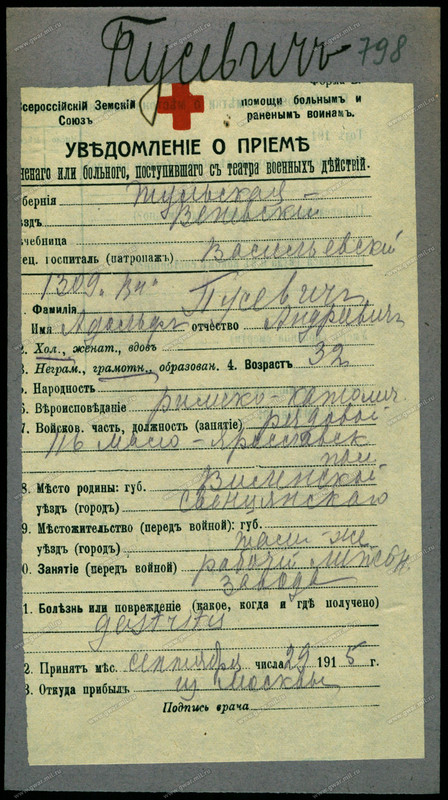 Пусевичъ 798
Всероссійскій Земскій
Союзъ
помощи больнымъ и
раненымъ воинамъ.
УВѢДОМЛЕНІЕ О ПРІЕМѢ
ненаго или больного, поступившаго съ театра военныхъ дѣйствій.
берния Тульская
ѣздъ Веневскій
чебница
ец. госпиталь (патронажъ) Васильевскій
1309 "Вп"
Фамилія Пусевичъ
Имя Адольфъ отчество Андревичъ
2. Хол., женат., вдовъ
3. Неграм., грамотн., образован. 4. Возрастъ 32
5. Народность
6. Вѣроисповѣданіе римско-католич.
7. Войсков. часть, должность (занятіе) рядовой
116 Мало-Ярославск
пол.
8. Мѣсто родины: губ. Виленской
уѣздъ (городъ) Свенцянскаго
9. Мѣстожительство (передъ войной): губ.
уѣздъ (городъ) тамъ-же
0. Занятіе (передъ войной) рабочій
завода
1. Болѣзнь или поврежденіе (какое, когда и гдѣ получено)
gastritis
2. Принятъ мѣс. сентября числа 29 1915 г.
3. Откуда прибылъ изъ Москвы
Подпись врача